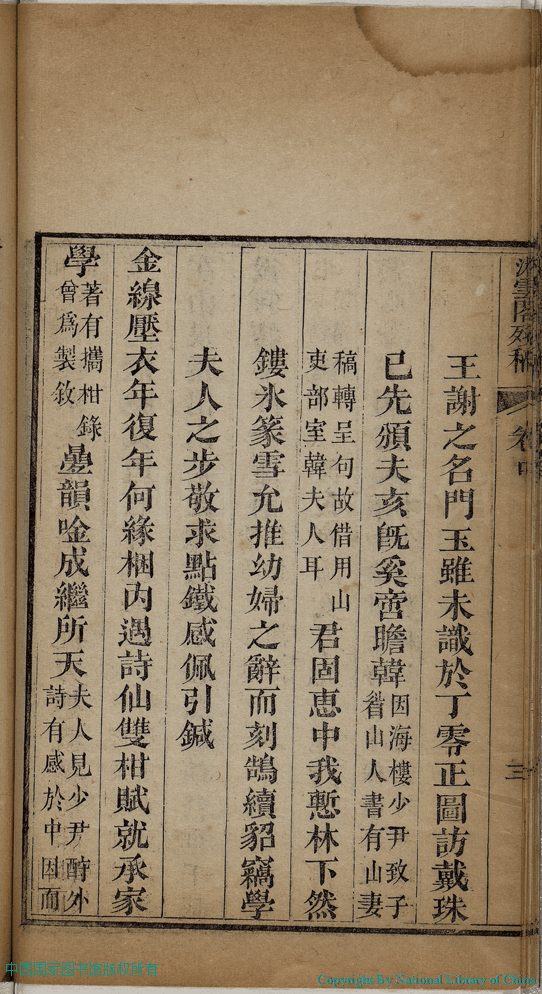 卷中
三
王謝之名門玉雖未識於丁零正圖訪戴珠
已先頒夫亥旣奚啻瞻韓因海樓少尹致子
山人書有山妻
稿轉呈句故借用山
吏部室韓夫人耳君固惠中我慙林下然
鏤氷篆雪允推幼婦之辭而刻鵠續貂竊學
夫人之步敬求點鐵感佩引鍼
金線壓衣年復年何緣梱內遇詩仙雙柑賦就承家
學著有攜柑錄
曾爲製敘曡韻唫成繼所天夫人見少尹酧外
詩有感於中因而
中国国家图书馆版权所有
Copyright By National Library of China